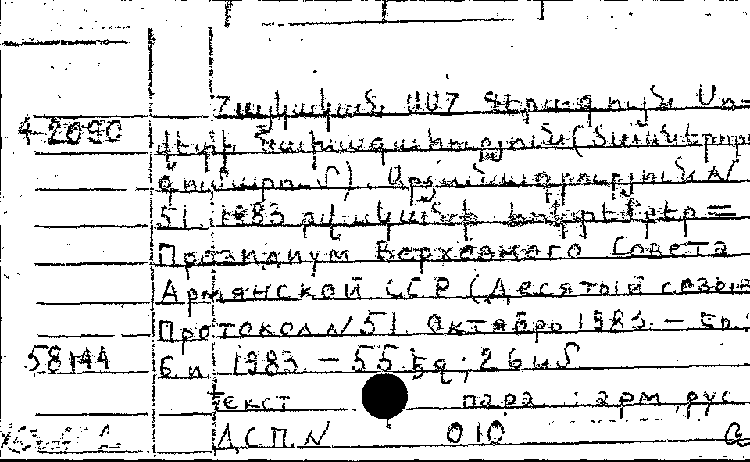 Հայկական ՍՍՀ Գերագույն Սո-
4-2090 վետի Նախագահություն (Տասներորդ
գումարում). Արձանագրություն N
51. 1983 թվականի հոկտեմբեր =
Президиум Верховного Совета
Армянской ССР (Десятый созыв
Протокол N 51. Октябрь 1983. – Եր.:
58144 Б.и. 1983 – 55 էջ; 26 սմ
Текст пара : арм, рус
Д.С.П. N 010